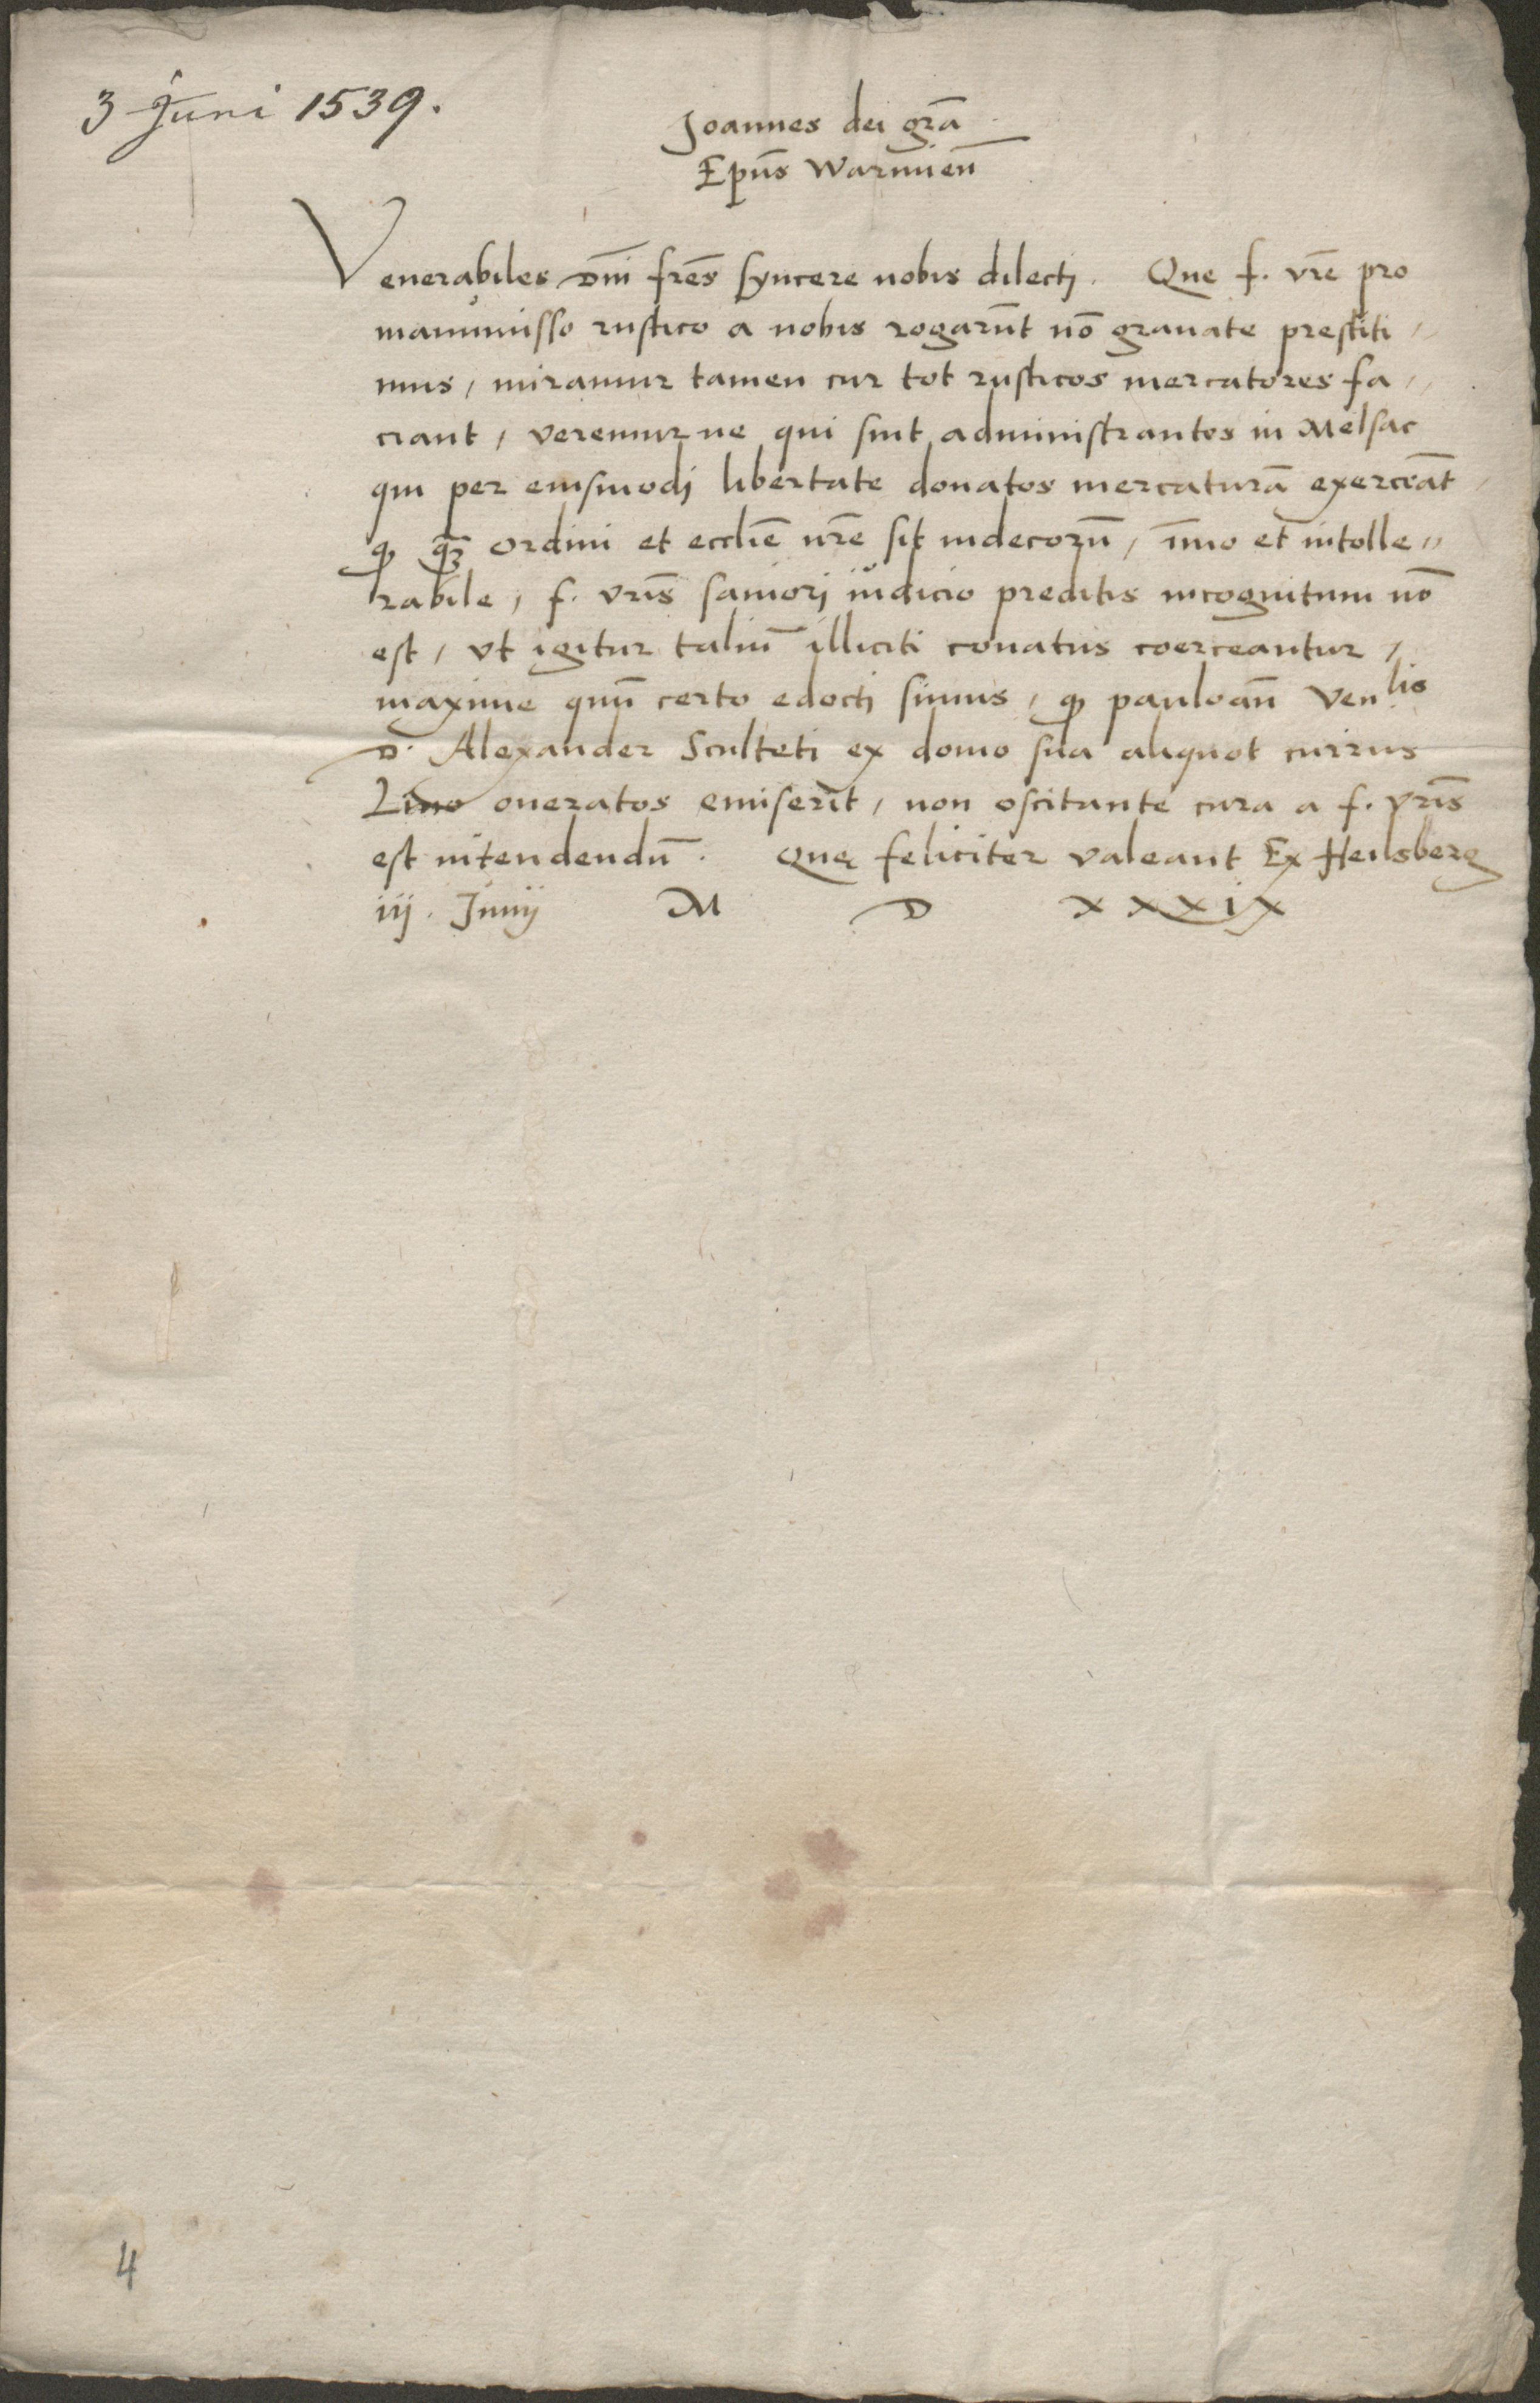 3 Juni 1539.
Joannes dei gr̄a
Ep̄us Warmień
Venerabiles Dn̄i fr̄es syncere nobis dilectj. Que f. vr̄e pro
manumisso rustico a nobis rogarūt nō grauate prestiti,,
mus, miramur tamen cur tot rusticos mercatores fa,,
ciant, veremur ne qui sint administrantes in Melsac
qui per eiusmodj libertate donatos mercaturā exerceāt,
ꝙ ꝙ̄ ordini et eccliē nr̄e sit indecorū, īmo et intolle,,
rabile, f. vrīs saniorj iudicio preditis incognitum nō
est, vt igitur taliū illiciti conatus coerceantur,
maxime quū certo edoctj simus, ꝙ pauloañ Venlis
D. Alexander Sculteti ex domo sua aliquot currus
Lino oneratos emiserīt, non oscitante cura a f. vrīs
est intendendū. Quę feliciter valeant Ex Heilsberg
iij. Junij M D XXXIX
4